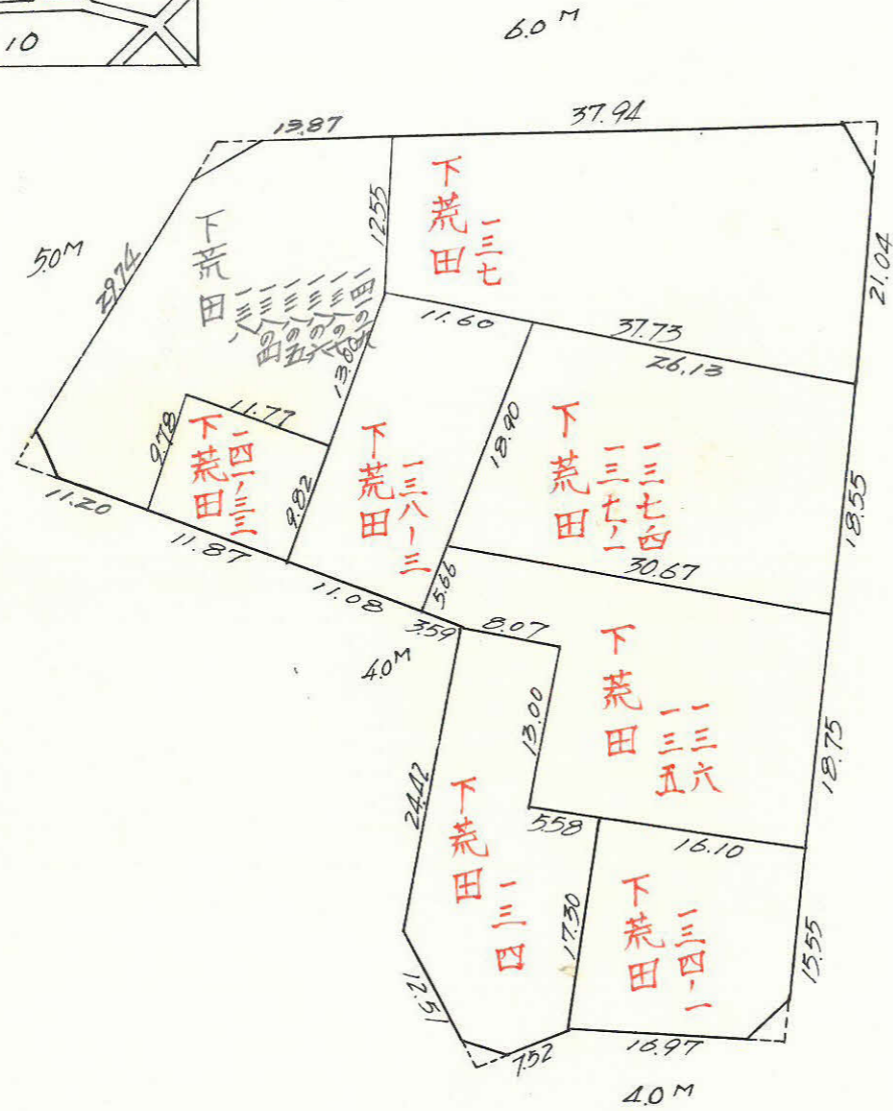 10
6.0 M
13.87
37.94
12.55
下荒田
一三七
21.04
5.0 M
29.74
下荒田
11.60
37.73
26.13
11.77
9.78
下荒田
一四一ノ三三
9.82
下荒田
一三八ー三
18.90
下荒田
一三七ノ四
一三七ノ一
18.55
11.20
11.87
11.08
5.66
30.67
3.59
8.07
4.0 M
13.00
下荒田
一三六
一三五
18.75
24.42
5.58
16.10
下荒田
一三四
17.30
下荒田
一三四ノ一
15.55
12.51
7.52
16.97
4.0 M